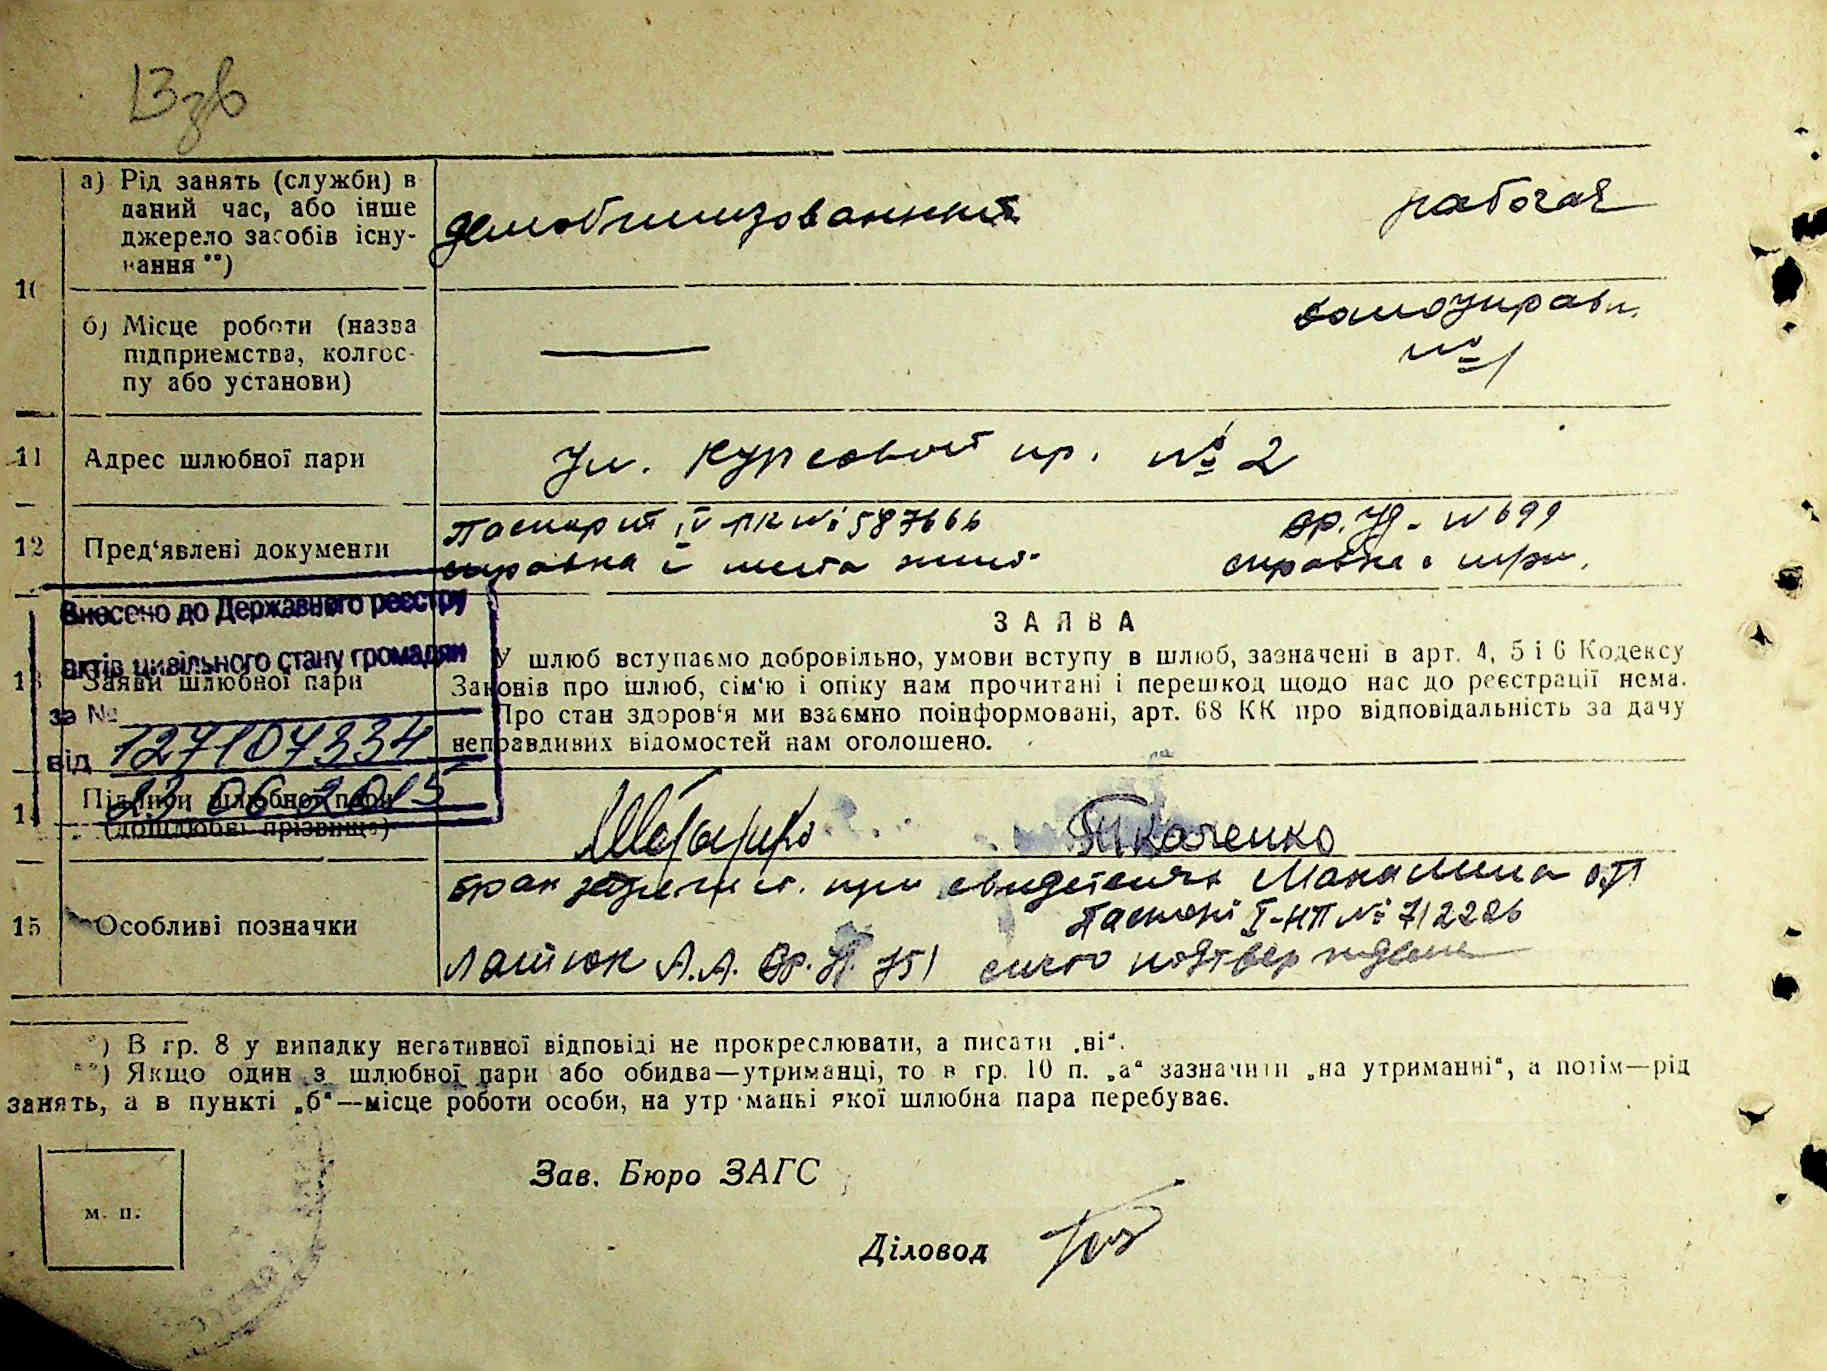 13 зв
а) Рід занять (служби) в даний час, або інше джерело засобів існування **)
демобилизованный
рабочая
10
б) Місце роботи (назва підприємства, колгоспу або установи)
—
№ 1
11 Адрес шлюбної пари
ул. Курсовой пр. № 2
12 Пред'явлені документи
Паспорт IV ПК № 587666
вр. уд. № 699
справка с места жит.
справка с
Внесено до Державного реєстру
актів цивільного стану громадян
за № 127107334
від 23 06 2015
ЗАЯВА
13 Заяви шлюбної пари
У шлюб вступаємо добровільно, умови вступу в шлюб, зазначені в арт. 4, 5 і 6 Кодексу
Законів про шлюб, сім'ю і опіку нам прочитані і перешкод щодо нас до реєстрації нема.
Про стан здоров'я ми взаємно поінформовані, арт. 68 КК про відповідальність за дачу
неправдивих відомостей нам оголошено.
14 Підписи шлюбної пари
(дошлюбні прізвища)
Ткаченко
15 Особливі позначки
брак зарегист. при свидетелях
Паспорт I-НП № 712226
Латюк А.А. Вр. уд. 751 личго подтверждаем
*) В гр. 8 у випадку негативної відповіді не прокреслювати, а писати „ні“.
**) Якщо один з шлюбної пари або обидва—утриманці, то в гр. 10 п. „а“ зазначити „на утриманні“, а потім—рід
занять, а в пункті „б“—місце роботи особи, на утриманні якої шлюбна пара перебуває.
Зав. Бюро ЗАГС
м. п.
Діловод